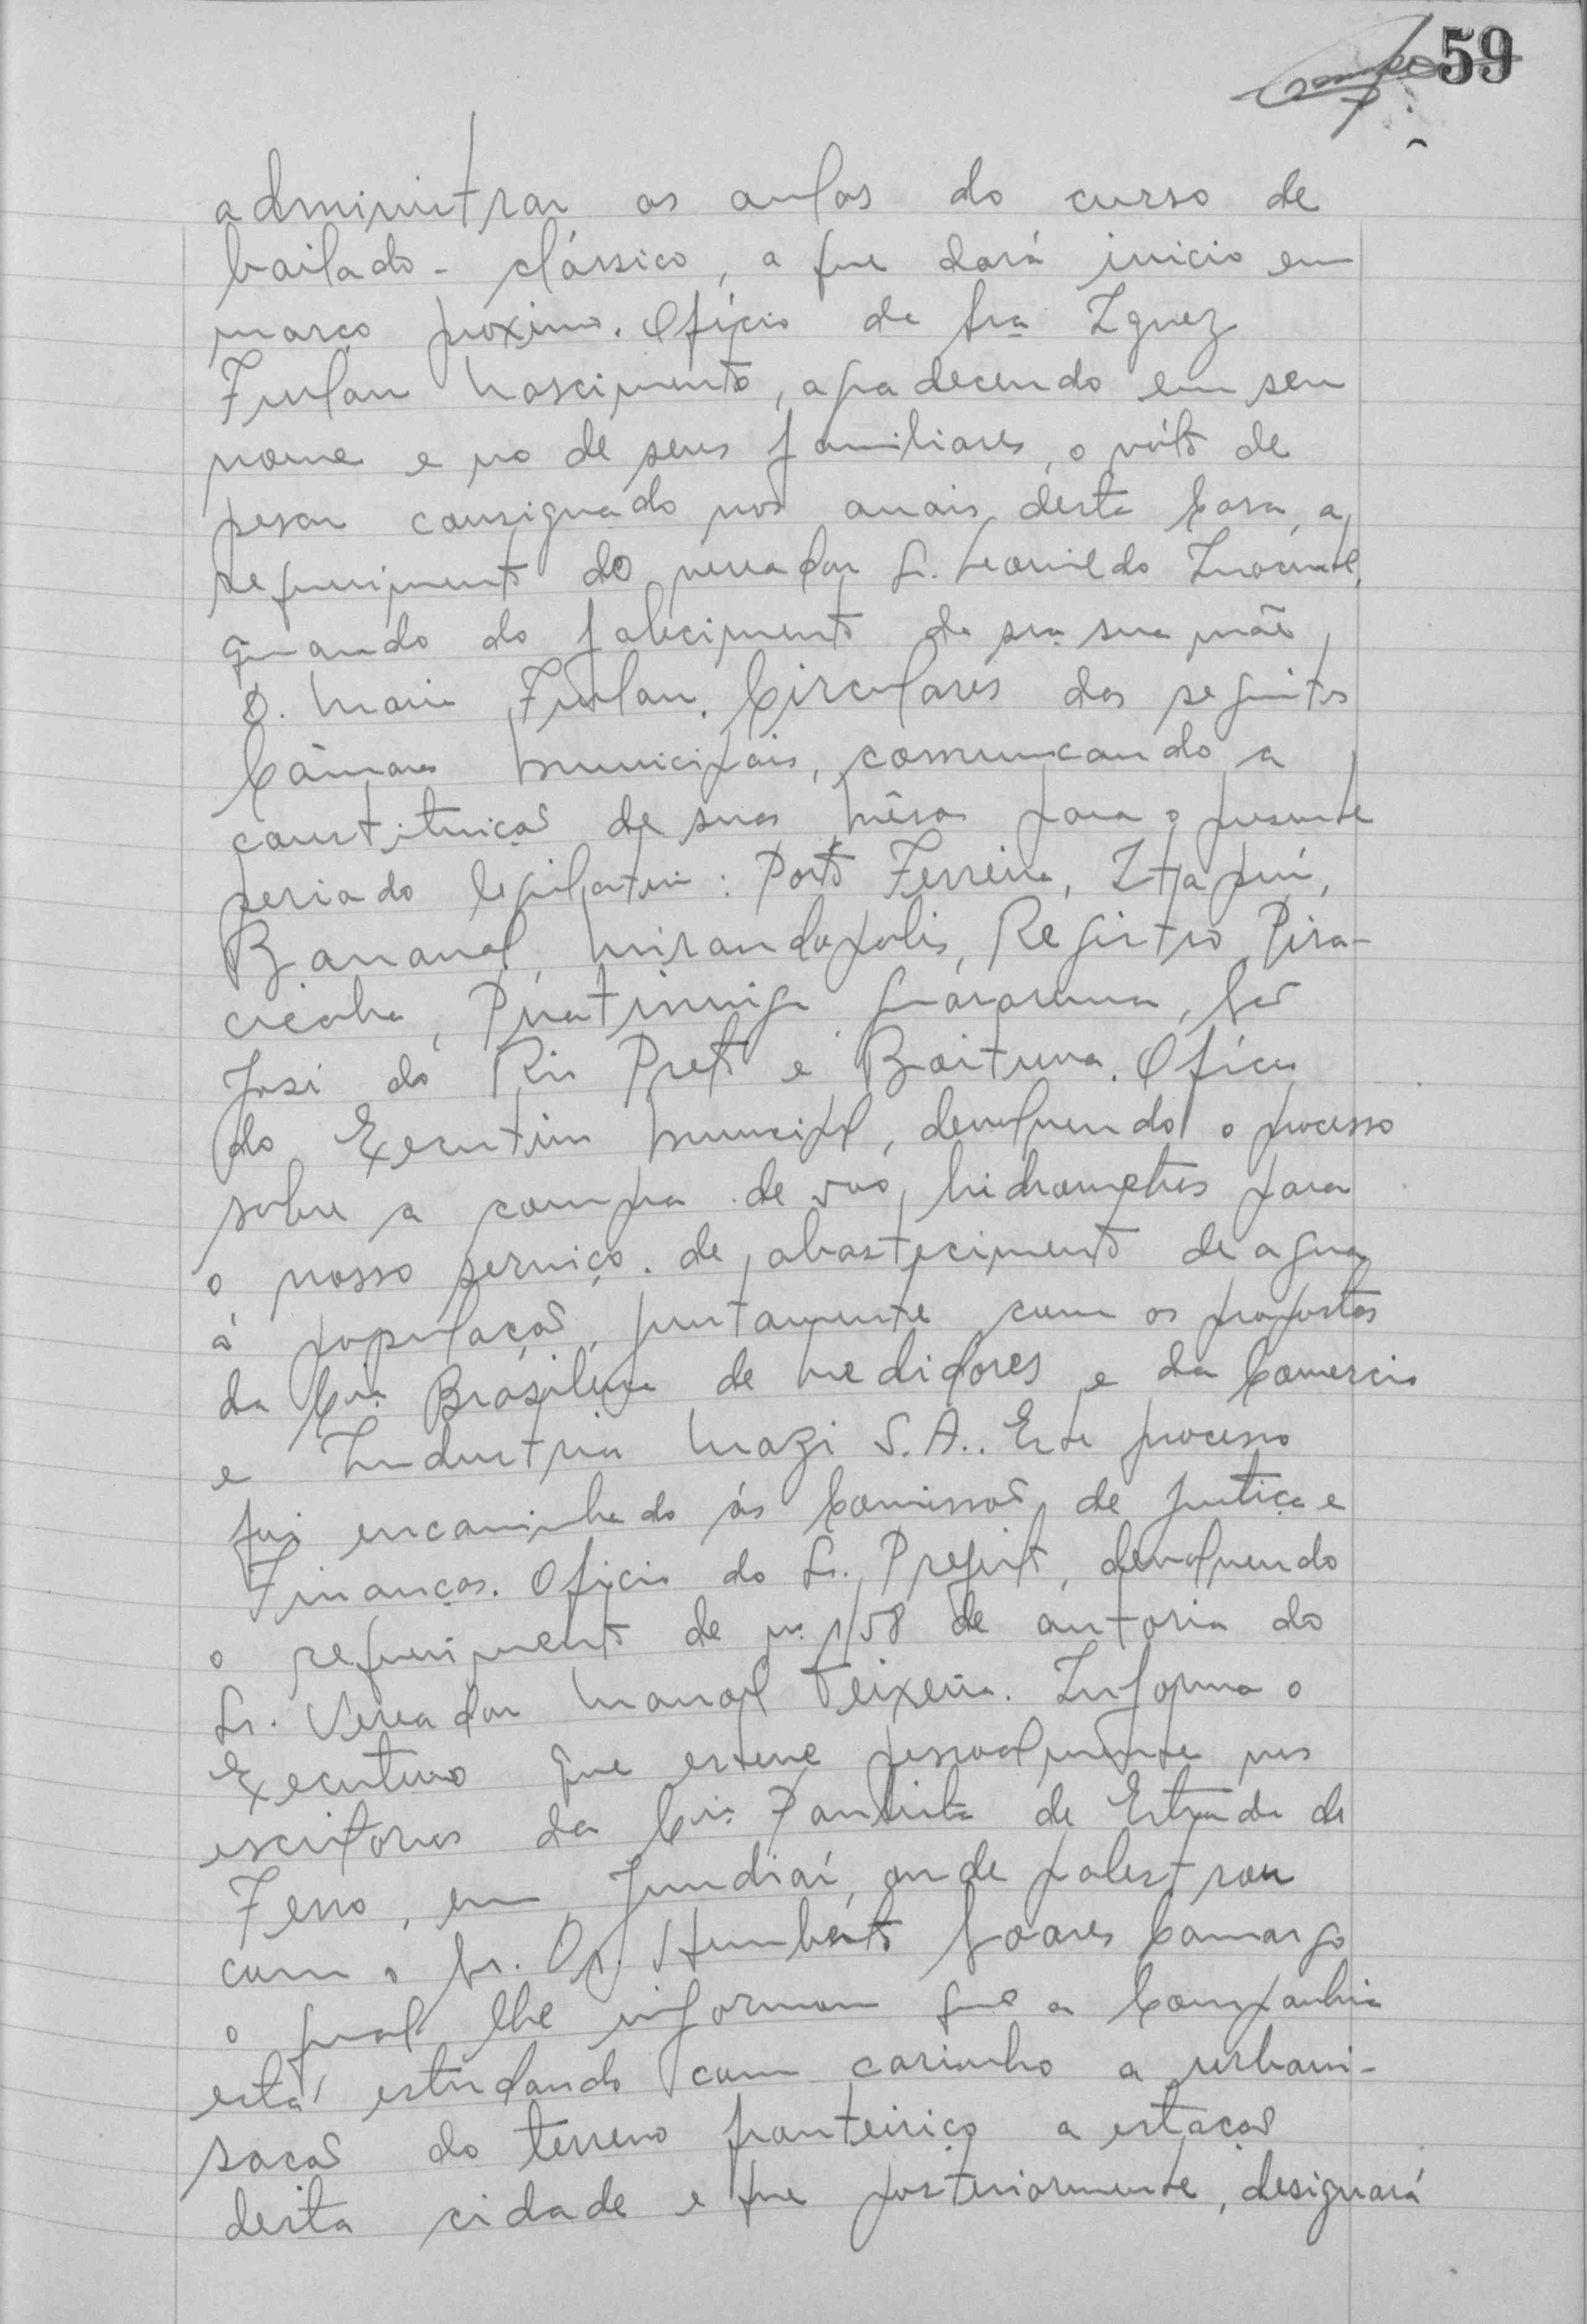 59
administrar as aulas do curso de
bailado-clássico, a que dará inicio em
março proximo. Ofício da Sra Ignez
Furlan Nascimento, agradecendo em seu
nome e no de seus familiares, o vóto de
pesar consignado nos anais desta Casa, a
requerimento do vereador Sr. Leonildo
quando do falecimento de sra sua mãe,
D. Maria Furlan. Circulares das seguintes
Câmaras Municipais, comunicando a
constituição de suas Mêsas para o presente
periodo legislativo: Porto Ferreira, Itapuí,
Bananal, Mirandopolis, Registro, Pira-
cicaba, Piratininga, Guararema, São
José do Rio Preto e Boituva. Oficio
do Executivo Municipal, devolvendo o processo
sobre a compra de 500 hidrometros para
o nosso serviço de abastecimento de agua
á população, juntamente com as propostas
da Cia Brasileira de Medidores e da Comercio
e Industria Mazi S.A.. Este processo
foi encaminhado ás Comissões de Justiça e
Finanças. Oficio do Sr. Prefeito, devolvendo
o requerimento de nº 1/58 de autoria do
Sr. Vereador Manoel Teixeira. Informa o
Executivo que esteve pessoalmente nos
escritorios da Cia Paulista de Estrada de
Ferro, em Jundiaí, onde palestrou
com o Sr. Dr. Humberto Soares Camargo
o qual lhe informou que a Companhia
está estudando com carinho a urbani-
sação do terreno fronteiriço a estação
desta cidade e que posteriormente, designará